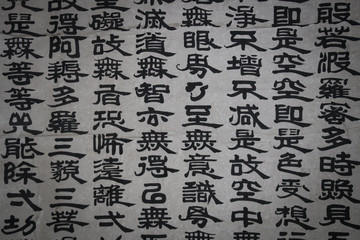 般若波羅蜜多時照見
即是空空即是色受想行
淨不增不減是故空中
無眼界乃至無意識界
滅道無智亦無得以無
罣礙故無有恐怖遠離弌
故得阿耨多羅三藐三菩
咒是無等等咒能除弌切